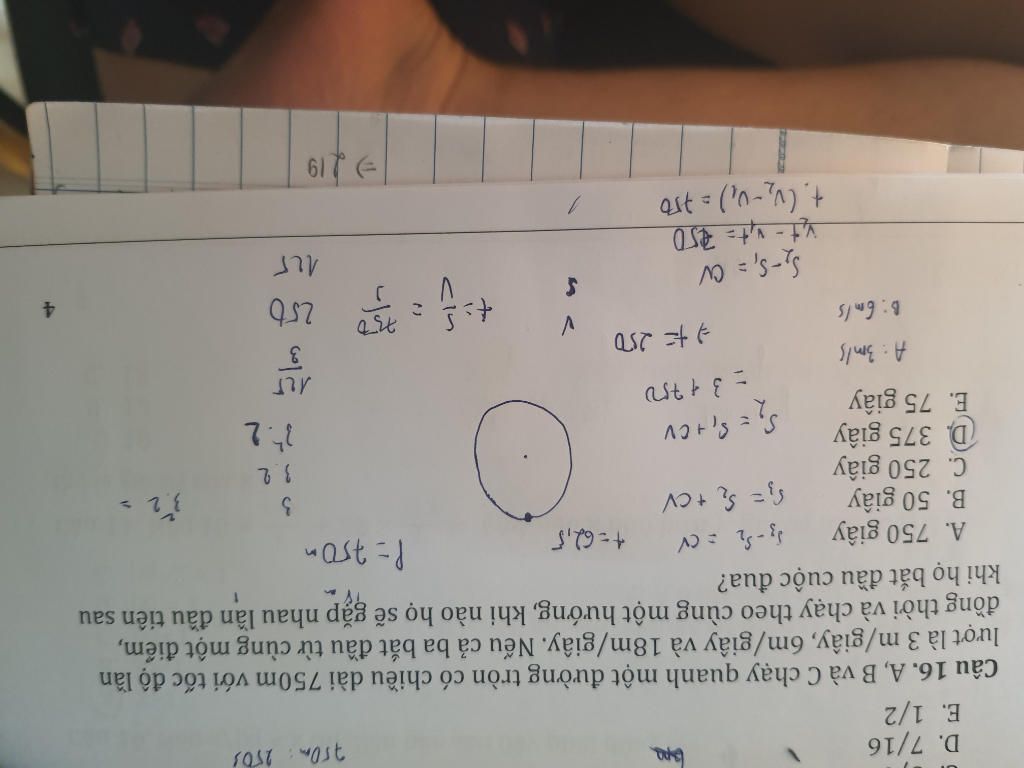 750m: 250s
D. 7/16
E. 1/2
Câu 16. A, B và C chạy quanh một đường tròn có chiều dài 750m với tốc độ lần
lượt là 3 m/giây, 6m/giây và 18m/giây. Nếu cả ba bắt đầu từ cùng một điểm,
đồng thời và chạy theo cùng một hướng, khi nào họ sẽ gặp nhau lần đầu tiên sau
khi họ bắt đầu cuộc đua?
A. 750 giây
B. 50 giây
C. 250 giây
D. 375 giây
E. 75 giây
A: 3m/s
B: 6m/s
S₃-S₂ = CV
t=62,5
S₃ = S₂ + CV
S₂ = S₁ + CV
= 3 + 750
=> t = 250
S₂-S₁ = CV
V₂t - V₁t = 750
t. (V₂-V₁) = 750
P = 750m
3
3.2
3².2
3².2 =
125/3
250
125
V
S
t = S/V = 750/3
4
=> 219